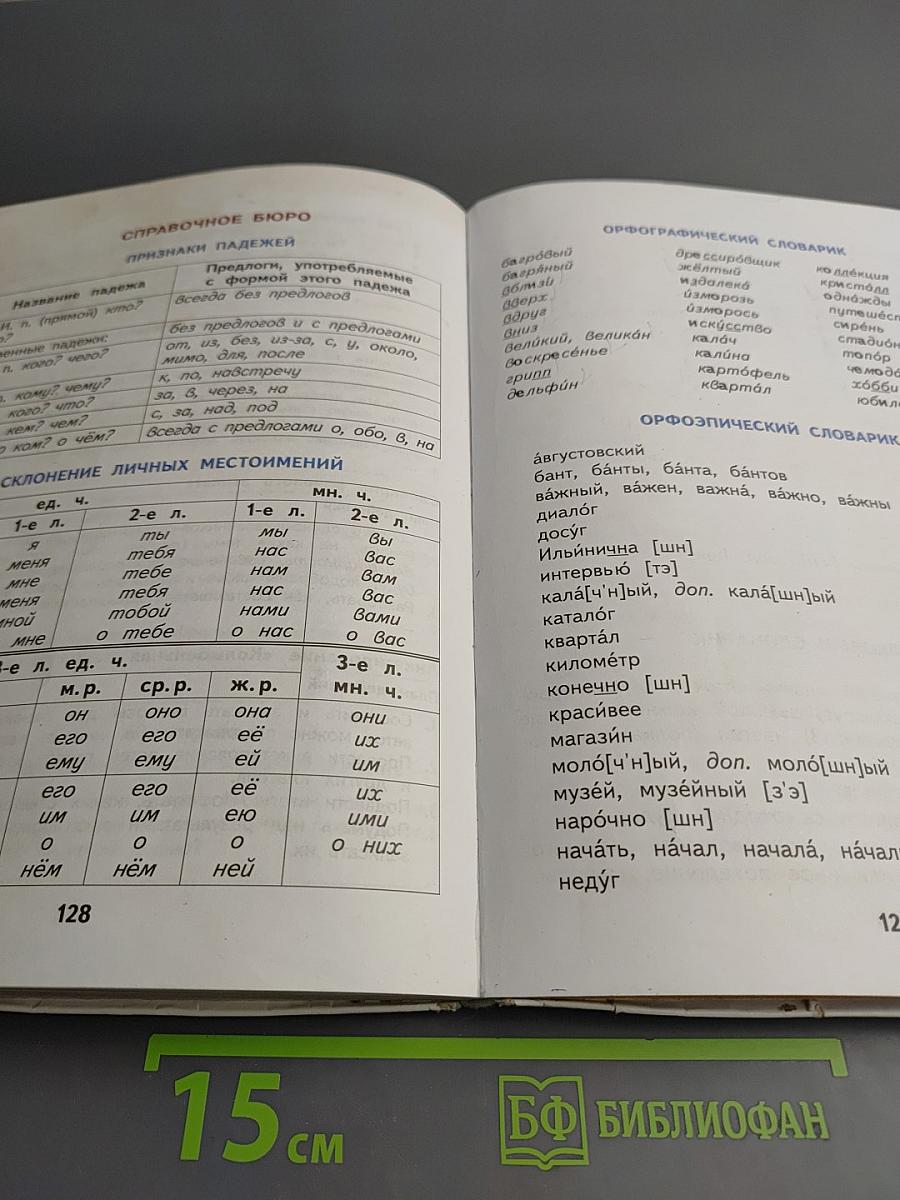 СПРАВОЧНОЕ БЮРО
ПРИЗНАКИ ПАДЕЖЕЙ
Название падежа Предлоги, употребляемые с формой этого падежа
И. п. (прямой) кто? Всегда без предлогов
падежи: без предлогов и с предлогами
п. кого? чего? от, из, без, из-за, с, у, около,
мимо, для, после
кому? чему? к, по, навстречу
кого? что? за, в, через, на
кем? чем? с, за, над, под
о ком? о чём? Всегда с предлогами о, обо, в, на
СКЛОНЕНИЕ ЛИЧНЫХ МЕСТОИМЕНИЙ
ед. ч. мн. ч.
1-е л. 2-е л. 1-е л. 2-е л.
я ты мы вы
меня тебя нас вас
мне тебе нам вам
меня тебя нас вас
мной тобой нами вами
мне о тебе о нас о вас
3-е л. ед. ч. 3-е л.
м. р. ср. р. ж. р. мн. ч.
он оно она они
его его её их
ему ему ей им
его его её их
им им ею ими
о о о о них
нём нём ней
128
ОРФОГРАФИЧЕСКИЙ СЛОВАРИК
багро́вый дрессиро́вщик колле́кция
багря́ный жёлтый криста́лл
вблизи́ издалека́ одна́жды
вверх и́зморозь
вдруг и́зморось сире́нь
вниз иску́сство
вели́кий, велика́н кала́ч топо́р
воскресе́нье кали́на
грипп карто́фель хо́бби
дельфи́н кварта́л
ОРФОЭПИЧЕСКИЙ СЛОВАРИК
а́вгустовский
бант, ба́нты, ба́нта, ба́нтов
ва́жный, ва́жен, важна́, ва́жно, ва́жны
диало́г
досу́г
Ильи́нична [шн]
интервью́ [тэ]
кала́[ч'н]ый, доп. кала́[шн]ый
катало́г
кварта́л
киломе́тр
коне́чно [шн]
краси́вее
магази́н
моло́[ч'н]ый, доп. моло́[шн]ый
музе́й, музе́йный [з'э]
наро́чно [шн]
нача́ть, на́чал, начала́,
неду́г
15 см
БФ БИБЛИОФАН